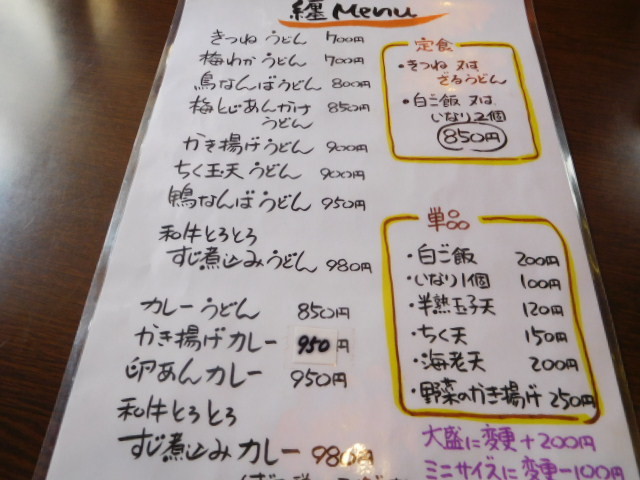 纏 Menu
きつねうどん 700円
梅わかうどん 700円
鳥なんばうどん 800円
梅とじあんかけ 850円
うどん
かき揚げうどん 900円
ちく玉天うどん 900円
鴨なんばうどん 950円
和牛とろとろ
すじ煮込みうどん 980円
カレーうどん 850円
かき揚げカレー 950円
卵あんカレー 950円
和牛とろとろ
すじ煮込みカレー 980円
定食
・きつね 又は
ざるうどん
・白ご飯 又は
いなり2個
850円
単品
・白ご飯 200円
・いなり1個 100円
・半熟玉子天 120円
・ちく天 150円
・海老天 200円
・野菜のかき揚げ 250円
大盛に変更+200円
ミニサイズに変更-100円